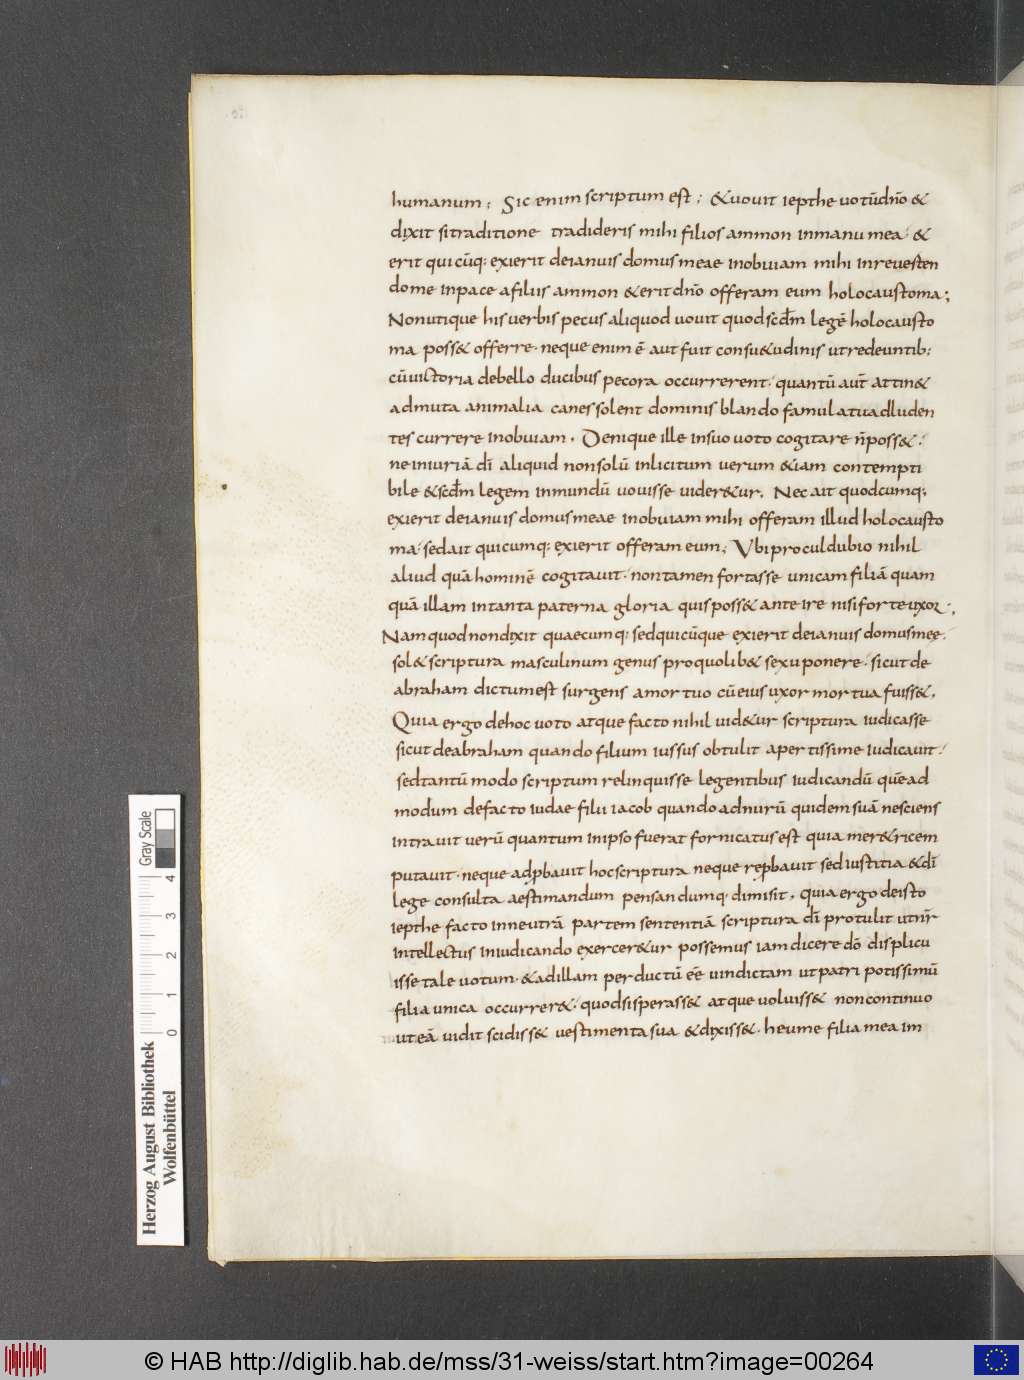 humanum; Sic enim scriptum est; &uouit iepthe uotūdn̄o &
dixit sitraditione tradideris mihi filios ammon inmanu mea· &
erit quicūq; exierit deianuis domus meae inobuiam mihi inreuerten
dome inpace afiliis ammon &erit dn̄o offeram eum holocaustoma;
Nonutique his uerbis pecus aliquod uouit quod scđm legē holocausto
ma poss& offerre· neque enim ē aut fuit consu&udinis utredeuntib;
cūuictoria debello ducibus pecora occurrerent· quantū aut̄ attin&
admuta animalia canes solent dominis blando famulatuadluden
tes currere inobuiam. Denique ille insuo uoto cogitare n̄poss&·
ne iniuriā dī aliquid nonsolū inlicitum uerum &iam contempti
bile &scđm legem inmundū uouisse uider&ur. Nec ait quodcumq;
exierit deianuis domus meae inobuiam mihi offeram illud holocausto
ma· sed ait quicumq; exierit offeram eum; Vbi proculdubio nihil
aliud quā hominē cogitauit· non tamen fortasse unicam filiā quam
quā illam intanta paterna gloria quis poss& ante ire nisi forte uxor;
Nam quod nondixit quaecumq; sed quicūque exierit deianuis domus mee·
sol& scriptura masculinum genus pro quolib& sexu ponere· sicut de
abraham dictum est surgens amortuo cū eius uxor mortua fuiss&.
Quia ergo dehoc uoto atque facto nihil uid&ur scriptura iudicasse
sicut deabraham quando filium iussus obtulit apertissime iudicauit·
sed tantū modo scriptum relinquisse legentibus iudicandū quēad
modum defacto iudae filii iacob quando adnurū quidem suā nesciens
intrauit uerū quantum inipso fuerat fornicatus est quia mer&ricem
putauit· neque adp̱bauit hoc scriptura neque rep̱bauit sed iustitia &dī
lege consulta aestimandum pensandumq; dimisit. quia ergo deisto
iepthe facto inneutrā partem sententiā scriptura dī protulit utnr̄
intellectus iniudicando exercer&ur possemus iam dicere dō displicu
isse tale uotum· &adillam perductū eē uindictam ut patri potissimū
filia unica occurrer&· quod si sperass& atque uoluiss& non continuo
ut eā uidit scidiss& uestimenta sua &dixiss&· heu me filia mea im
Gray Scale
0 1 2 3 4
Herzog August Bibliothek
Wolfenbüttel
© HAB http://diglib.hab.de/mss/31-weiss/start.htm?image=00264